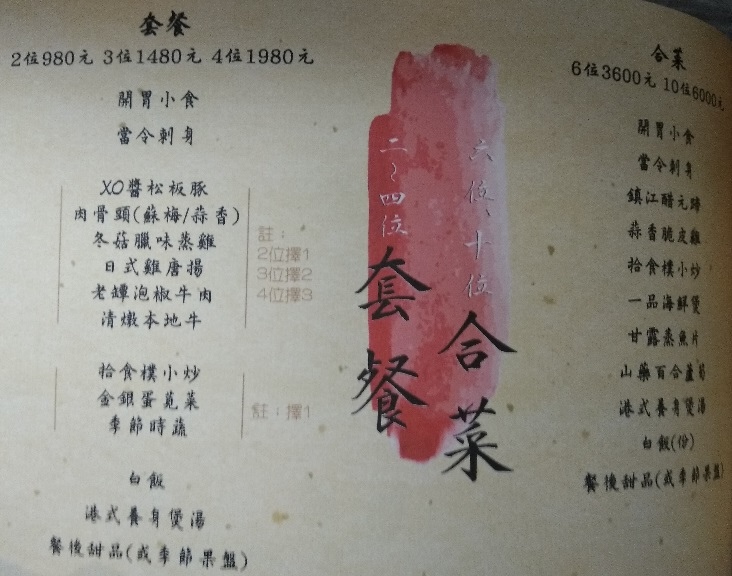 套餐
2位980元 3位1480元 4位1980元
開胃小食
當令刺身
XO醬松板豚
肉骨頭(蘇梅/蒜香)
冬菇臘味蒸雞
日式雞唐揚
老罈泡椒牛肉
清燉本地牛
註：
2位擇1
3位擇2
4位擇3
拾食樸小炒
金銀蛋莧菜
季節時蔬
註：擇1
白飯
港式養身煲湯
餐後甜品(或季節果盤)
二~四位
套餐
六位、十位
合菜
合菜
6位3600元 10位6000元
開胃小食
當令刺身
鎮江醋元蹄
蒜香脆皮雞
拾食樸小炒
一品海鮮煲
甘露蒸魚片
山藥百合蘆筍
港式養身煲湯
白飯(份)
餐後甜品(或季節果盤)